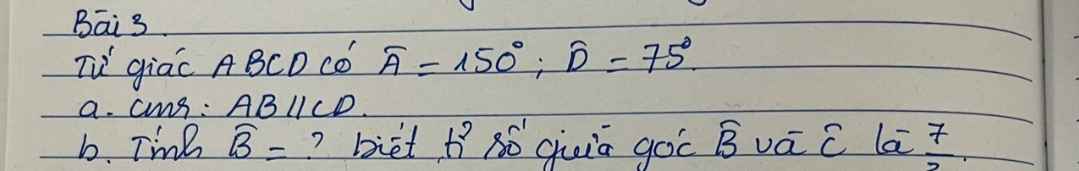 Bài 3.
Tứ giác ABCD có Â = 150°; D̂ = 75°.
a. cmr: AB//CD.
b. Tính B̂ = ? biết tỉ số giữa góc B̂ và Ĉ là 7